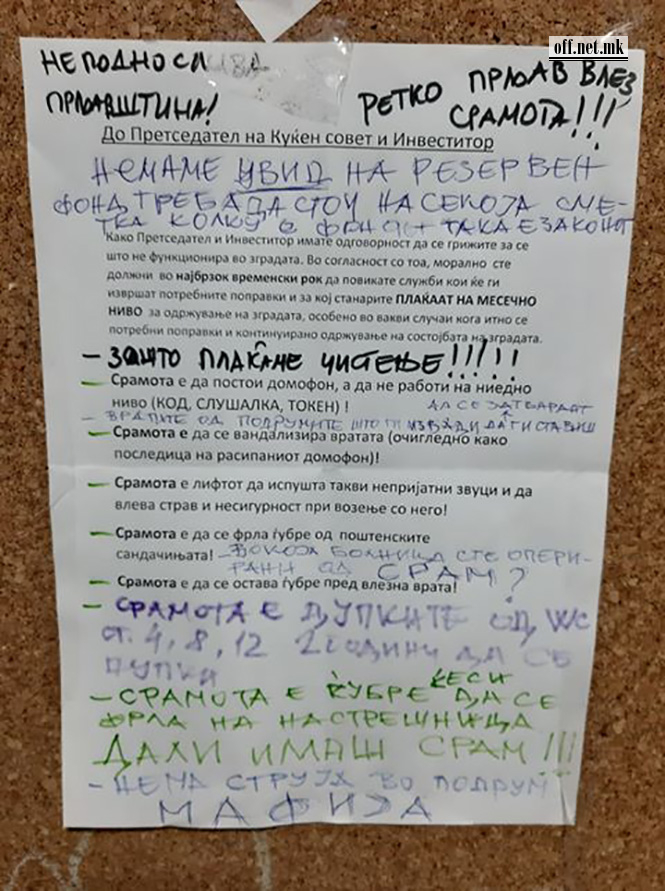 off.net.mk
НЕПОДНОСЛИВА
ПРЉАВШТИНА!
РЕТКО ПРЉАВ ВЛЕЗ
СРАМОТА!!!
До Претседател на Куќен совет и Инвеститор
НЕМАМЕ УВИД НА РЕЗЕРВЕН
ФОНД ТРЕБА ДА СТОИ НА СЕКОЈА СМЕ-
ТКА КОЛКУ Е ТАКА Е ЗАКОНОТ
Како Претседател и Инвеститор имате одговорност да се грижите за се
што не функционира во зградата. Во согласност со тоа, морално сте
должни во најбрзок временски рок да повикате служби кои ќе ги
извршат потребните поправки и за кој станарите ПЛАЌААТ НА МЕСЕЧНО
НИВО за одржување на зградата, особено во вакви случаи кога итно се
потребни поправки и континуирано одржување на состојбата на зградата.
- ЗОШТО ПЛАЌАМЕ ЧИСТЕЊЕ!!!!!!
- Срамота е да постои домофон, а да не работи на ниедно
ниво (КОД, СЛУШАЛКА, ТОКЕН) !
ДА СЕ ЗАТВАРААТ
- ВРАТИТЕ ОД ПОДРУМИТЕ ШТО ГИ ИЗВАДИ ДА ГИ СТАВИШ
- Срамота е да се вандализира вратата (очигледно како
последица на расипаниот домофон)!
- Срамота е лифтот да испушта такви непријатни звуци и да
влева страв и несигурност при возење со него!
- Срамота е да се фрла ѓубре од поштенските
сандачињата! - ВО КОЈА БОЛНИЦА СТЕ ОПЕРИ-
РАНИ ОД СРАМ?
- Срамота е да се остава ѓубре пред влезна врата!
- СРАМОТА Е ДУПКИТЕ ОД WC
СТ. 4, 8, 12 2 ГОДИНИ ДА СЕ
ДУПКИ
- СРАМОТА Е ЃУБРЕ ЌЕСИ ДА СЕ
ФРЛА НА НАСТРЕШНИЦА
ДАЛИ ИМАШ СРАМ!!!
- НЕМА СТРУЈА ВО ПОДРУМ
МАФИЈА